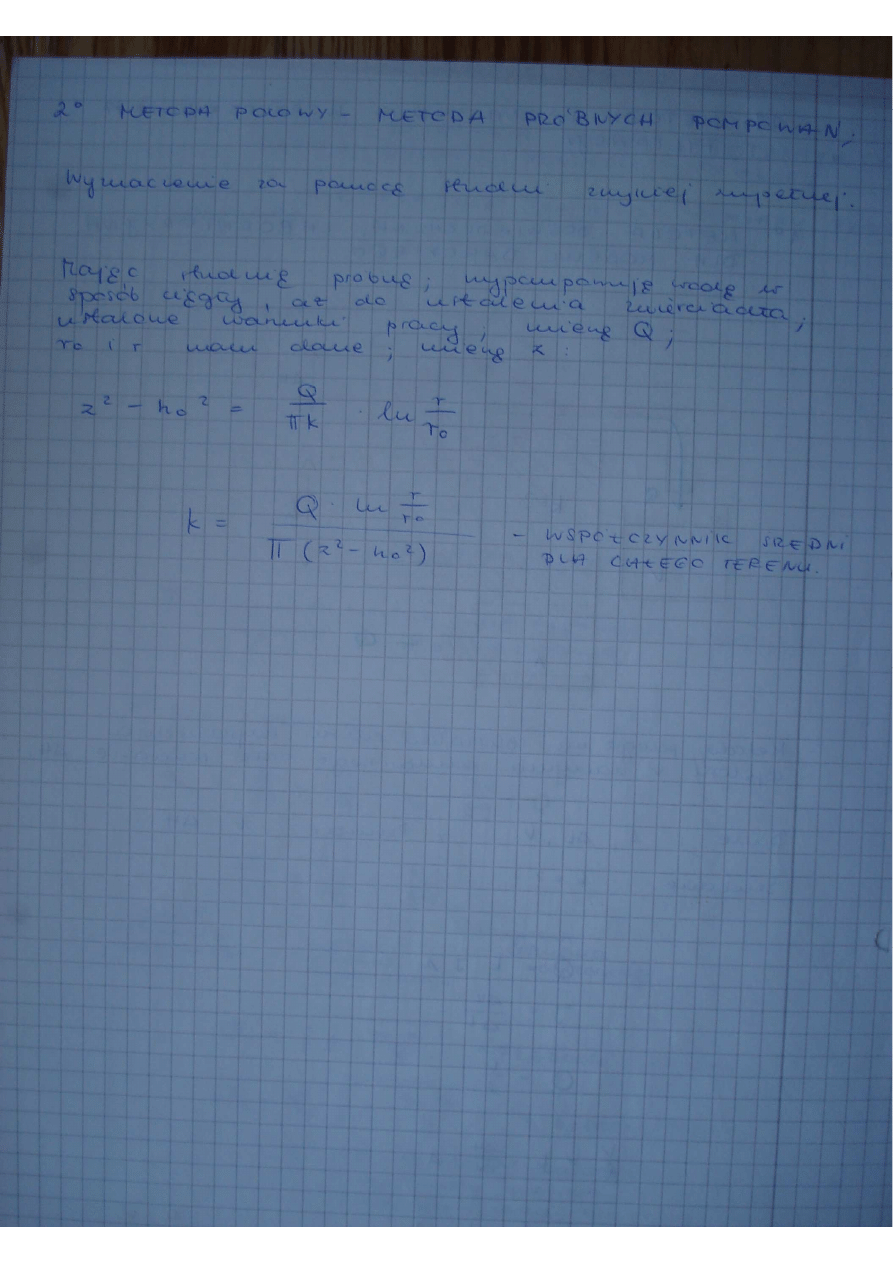 2° METODA POLOWY – METODA PRÓBNYCH POMPOWAŃ;
Wyznaczenie za pomocą studni zwykłej zupełnej.
Mając studnię próbną; wypompowuję wodę w
sposób ciągły, aż do ustalenia zwierciadła;
ustalone warunki pracy; mierzę Q;
r₀ i r mam dane; mierzę z:
z² – h₀² = Q/πk · ln r/r₀
k = Q · ln r/r₀ / π (z² – h₀²) – WSPÓŁCZYNNIK ŚREDNI
DLA CAŁEGO TERENU.